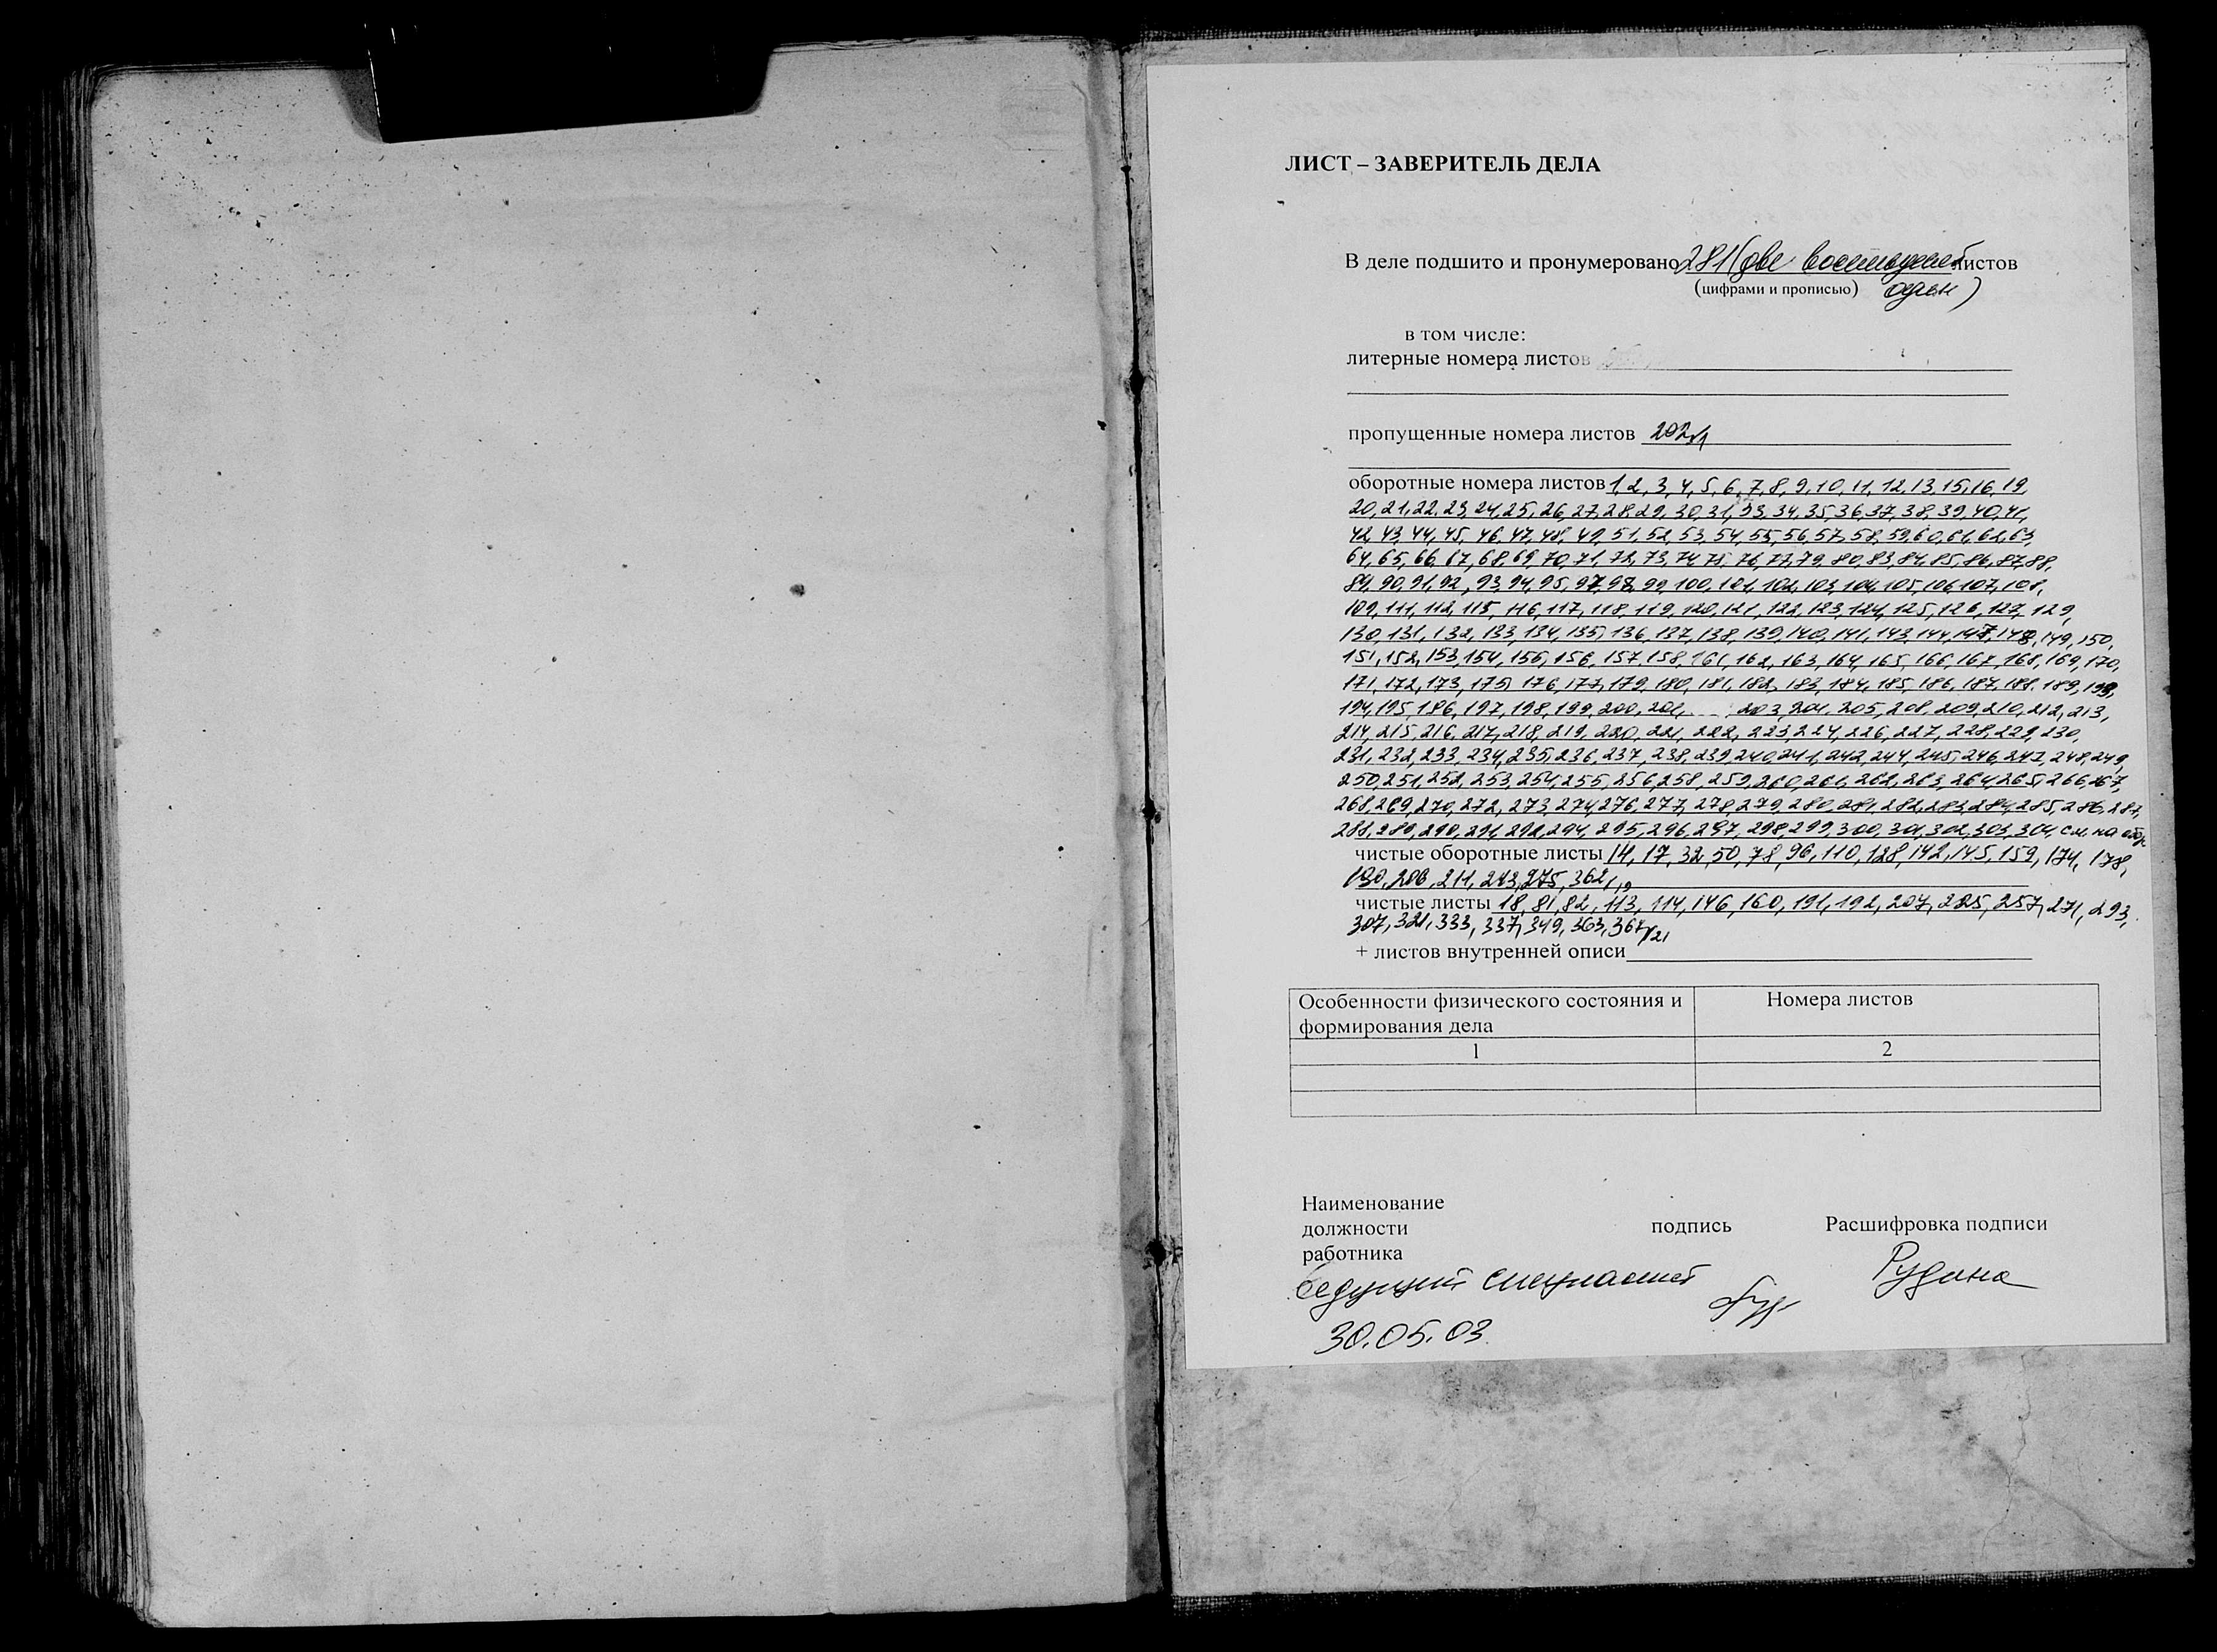 ЛИСТ – ЗАВЕРИТЕЛЬ ДЕЛА
В деле подшито и пронумеровано 281 (две восемьдесят листов
(цифрами и прописью) один)
в том числе:
литерные номера листов
пропущенные номера листов 202/1
оборотные номера листов 1, 2, 3, 4, 5, 6, 7, 8, 9, 10, 11, 12, 13, 15, 16, 19,
20, 21, 22, 23, 24, 25, 26, 27, 28, 29, 30, 31, 33, 34, 35, 36, 37, 38, 39, 40, 41,
42, 43, 44, 45, 46, 47, 48, 49, 51, 52, 53, 54, 55, 56, 57, 58, 59, 60, 61, 62, 63,
64, 65, 66, 67, 68, 69, 70, 71, 72, 73, 74, 75, 76, 77, 79, 80, 83, 84, 85, 86, 87, 88,
89, 90, 91, 92, 93, 94, 95, 97, 98, 99, 100, 101, 102, 103, 104, 105, 106, 107, 108,
109, 111, 112, 115, 116, 117, 118, 119, 120, 121, 122, 123, 124, 125, 126, 127, 129,
130, 131, 132, 133, 134, 135, 136, 137, 138, 139, 140, 141, 143, 144, 147, 148, 149, 150,
151, 152, 153, 154, 155, 156, 157, 158, 161, 162, 163, 164, 165, 166, 167, 168, 169, 170,
171, 172, 173, 175, 176, 177, 179, 180, 181, 182, 183, 184, 185, 186, 187, 188, 189, 193,
194, 195, 196, 197, 198, 199, 200, 201, 203, 204, 205, 208, 209, 210, 212, 213,
214, 215, 216, 217, 218, 219, 220, 221, 222, 223, 224, 226, 227, 228, 229, 230,
231, 232, 233, 234, 235, 236, 237, 238, 239, 240, 241, 242, 244, 245, 246, 247, 248, 249,
250, 251, 252, 253, 254, 255, 256, 258, 259, 260, 261, 262, 263, 264, 265, 266, 267,
268, 269, 270, 272, 273, 274, 276, 277, 278, 279, 280, 281, 282, 283, 284, 285, 286, 287,
288, 289, 290, 291, 292, 294, 295, 296, 297, 298, 299, 300, 301, 302, 303, 304, см. на обор
чистые оборотные листы 14, 17, 32, 50, 78, 96, 110, 128, 142, 145, 159, 174, 178,
190, 206, 211, 243, 275, 362/19
чистые листы 18, 81, 82, 113, 114, 146, 160, 191, 192, 207, 225, 257, 271, 293,
307, 321, 333, 337, 349, 363, 364/21
+ листов внутренней описи
Особенности физического состояния и Номера листов
формирования дела
1 2
Наименование
должности подпись Расшифровка подписи
работника
ведущий специалист Рудина
30.05.03